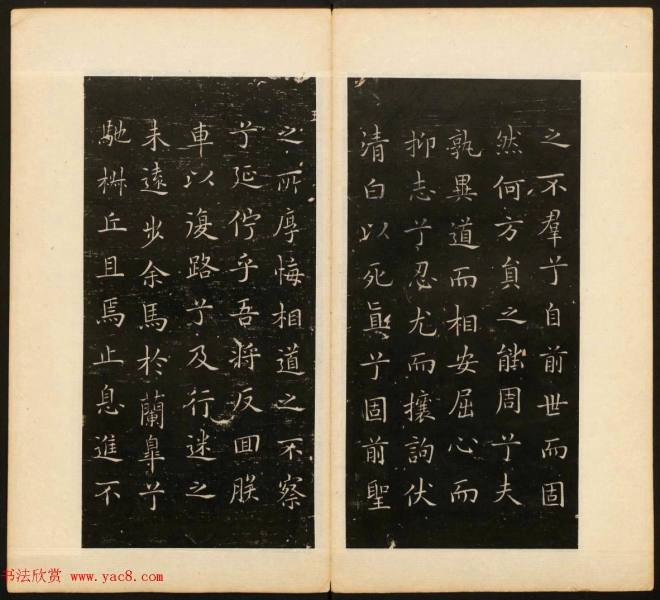 之不羣兮自前世而固
然何方員之能周兮夫
孰異道而相安屈心而
抑志兮忍尤而攘詢伏
清白以死真兮固前聖
之所厚悔相道之不察
兮延佇乎吾將反回朕
車以復路兮及行迷之
未遠步余馬於蘭皋兮
馳椒丘且焉止息進不
书法欣赏 www.yac8.com